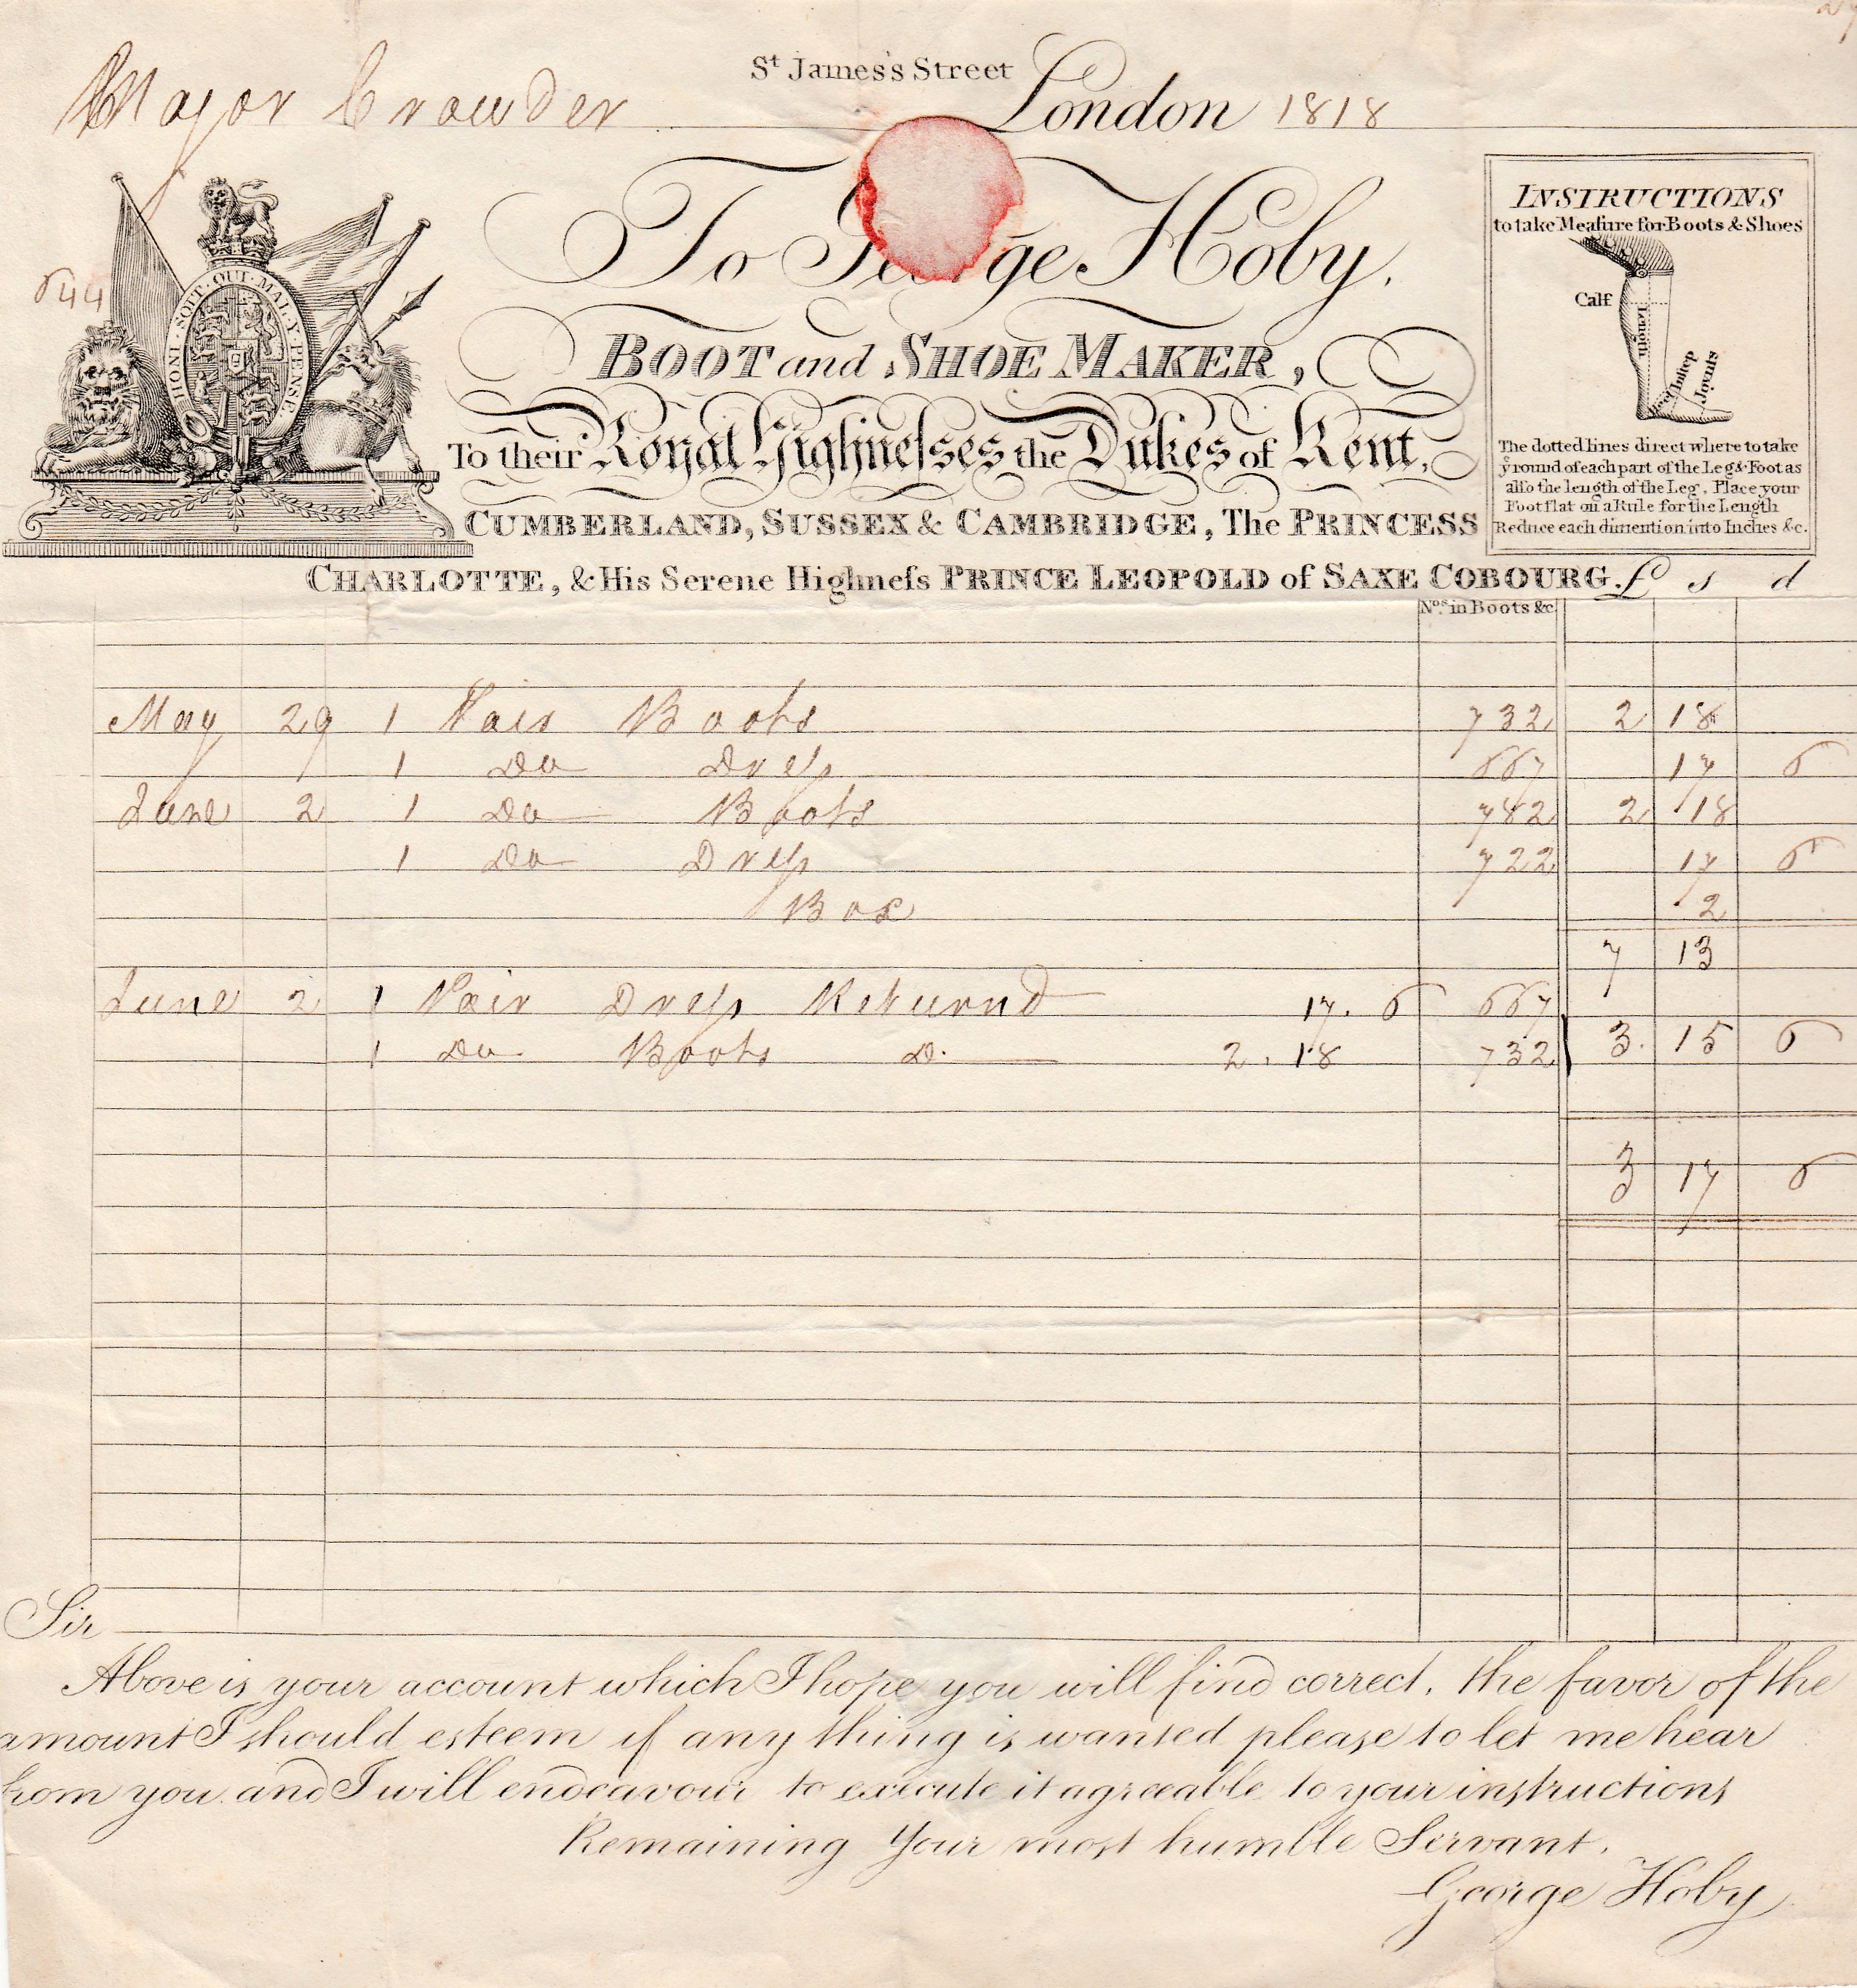 St James's Street
Major Crowder London 1818
To George Hoby.
BOOT and SHOE MAKER,
To their Royal Highnesses the Dukes of Kent,
CUMBERLAND, SUSSEX & CAMBRIDGE, The PRINCESS
CHARLOTTE, & His Serene Highness PRINCE LEOPOLD of SAXE COBOURG.
HONI · SOIT · QUI · MAL · Y · PENSE
644
INSTRUCTIONS
to take Measure for Boots & Shoes
Calf
Length
Heel
Instep
Joints
The dotted lines direct where to take
ye round of each part of the Leg & Foot as
also the length of the Leg. Place your
Foot flat on a Rule for the Length
Reduce each dimention into Inches &c.
£ s d
Nos. in Boots &c
May 29 1 Pair Boots 732 2 18
1 Do Dress 667 17 6
June 2 1 Do Boots 782 2 18
1 Do Dress 722 17 6
Box 2
7 13
June 2 1 Pair Dress Returnd 17. 6 667
1 Do Boots D. 2. 18 732 3. 15 6
3 17 6
Sir
Above is your account which I hope you will find correct, the favor of the
amount I should esteem if any thing is wanted please to let me hear
from you and I will endeavour to execute it agreeable to your instructions
Remaining Your most humble Servant.
George Hoby